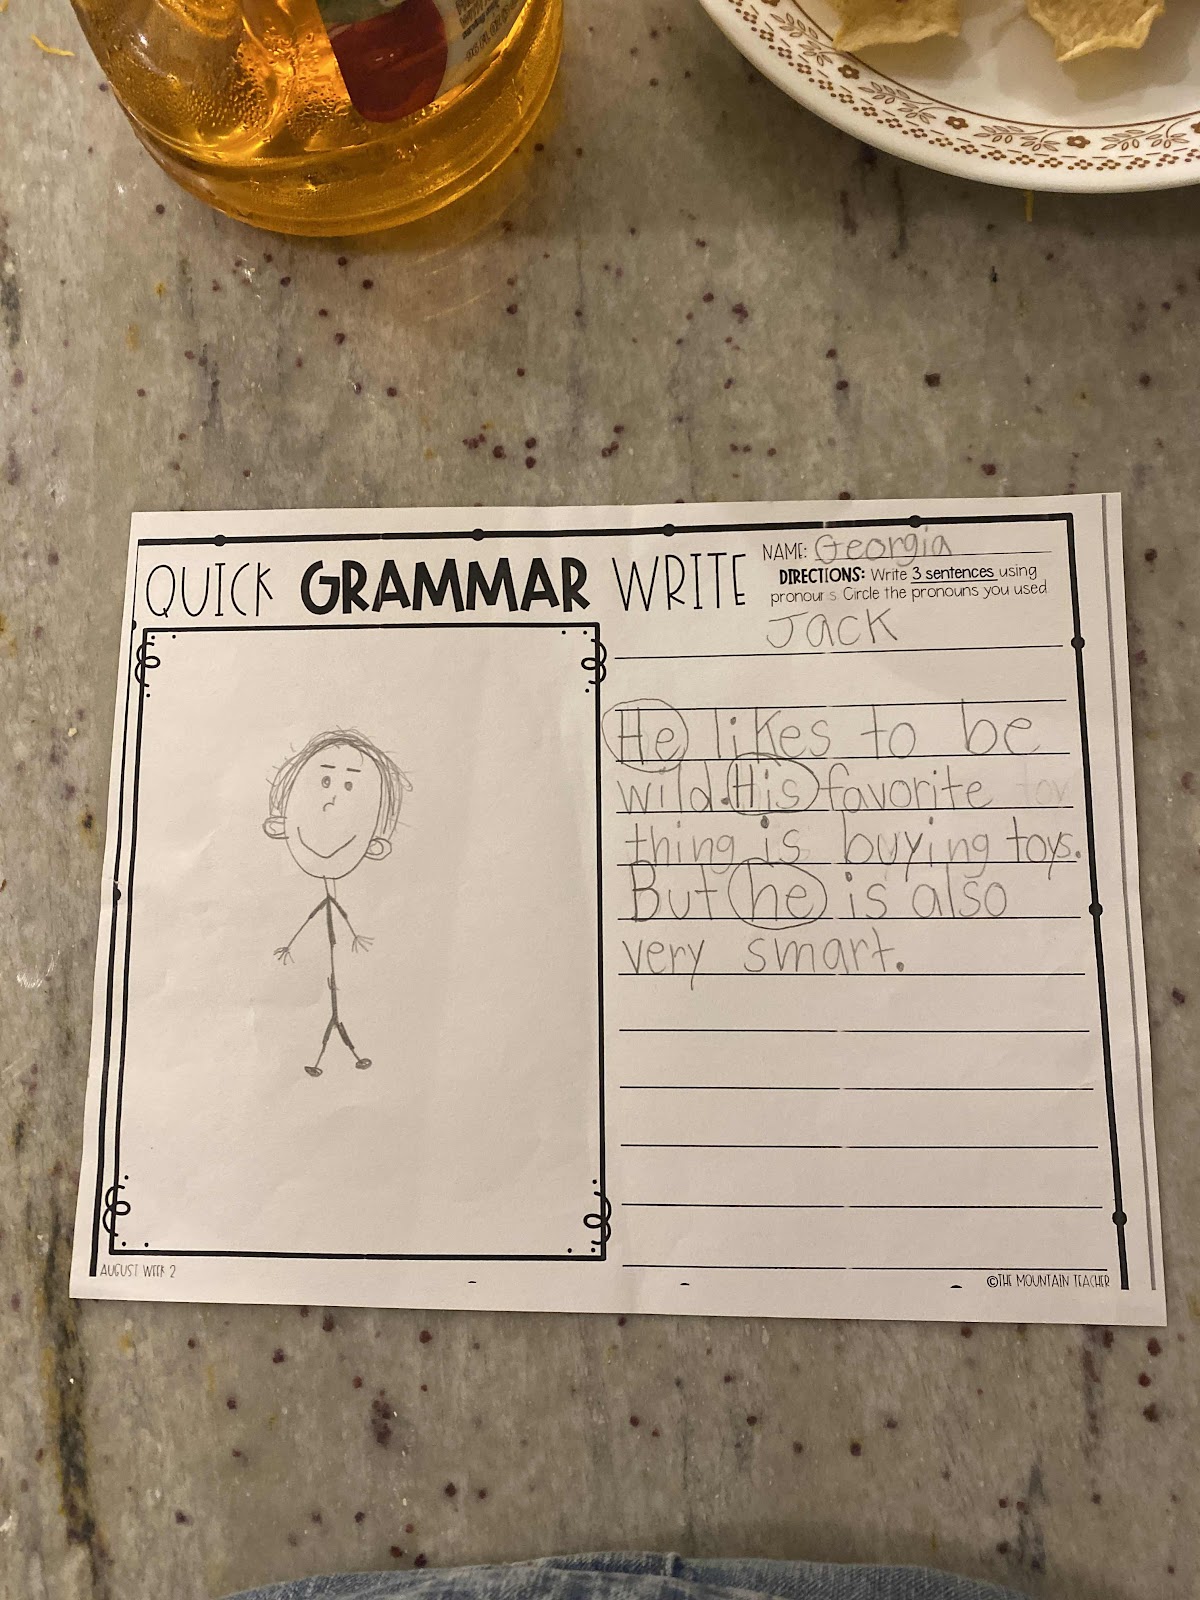 QUICK GRAMMAR WRITE
NAME: Georgia
DIRECTIONS: Write 3 sentences using
pronouns. Circle the pronouns you used
Jack
He likes to be
wild. His favorite
thing is buying toys.
But he is also
very smart.
AUGUST WEEK 2
©THE MOUNTAIN TEACHER